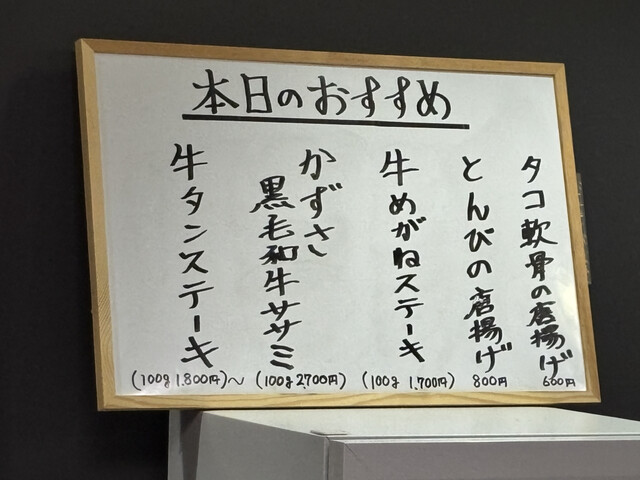 本日のおすすめ
タコ軟骨の唐揚げ
600円
とんびの唐揚げ
800円
牛めがねステーキ
(100g 1,700円)
かずさ
黒毛和牛ササミ
(100g 2,700円)
牛タンステーキ
(100g 1,800円)～